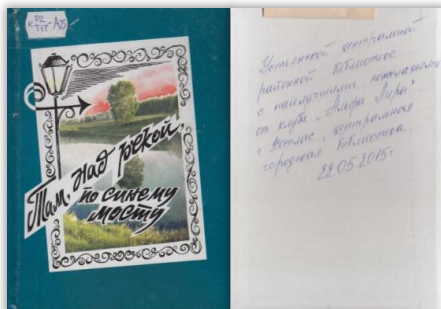 Р2
Там, над рекой,
по синему
мосту
Устьянской центральной
районной библиотеке
с наилучшими пожеланиями
от клуба "Альфа Лиры"
г. Котлас, центральная
городская библиотека.
22.05.2015г.